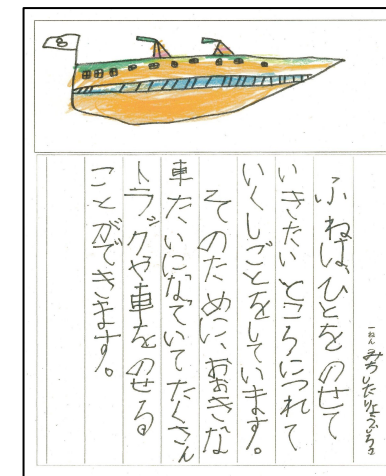 一ねん
ふねは、ひとをのせて
いきたいところにつれて
いくしごとをしています。
そのために、おおきな
車たいになっていてたくさん
トラックや車をのせる
ことができます。